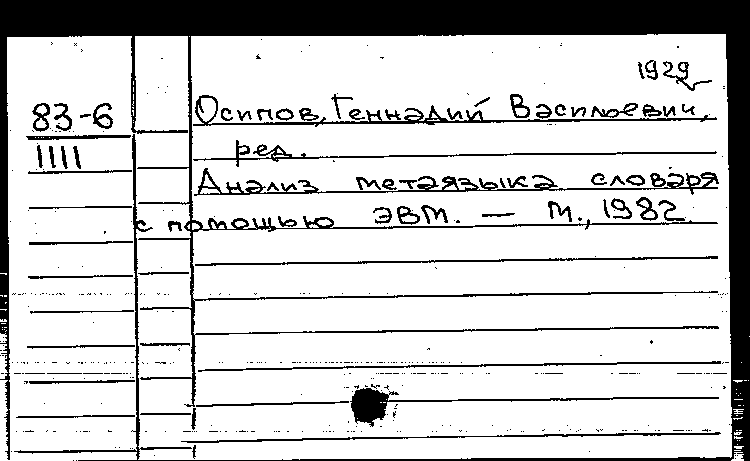 1929
83-6 Осипов, Геннадий Васильевич,
1111 ред.
Анализ метаязыка словаря
с помощью ЭВМ. — М., 1982